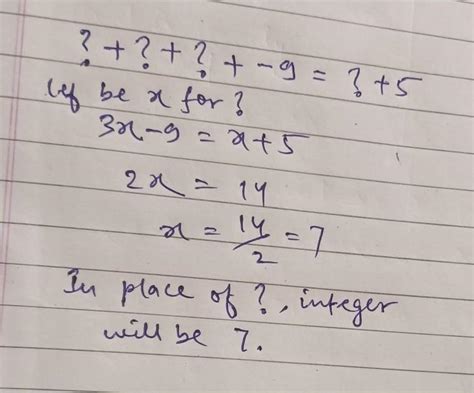 ? + ? + ? + -9 = ? + 5
let be x for ?
3x - 9 = x + 5
2x = 14
x = 14/2 = 7
In place of ?, integer
will be 7.